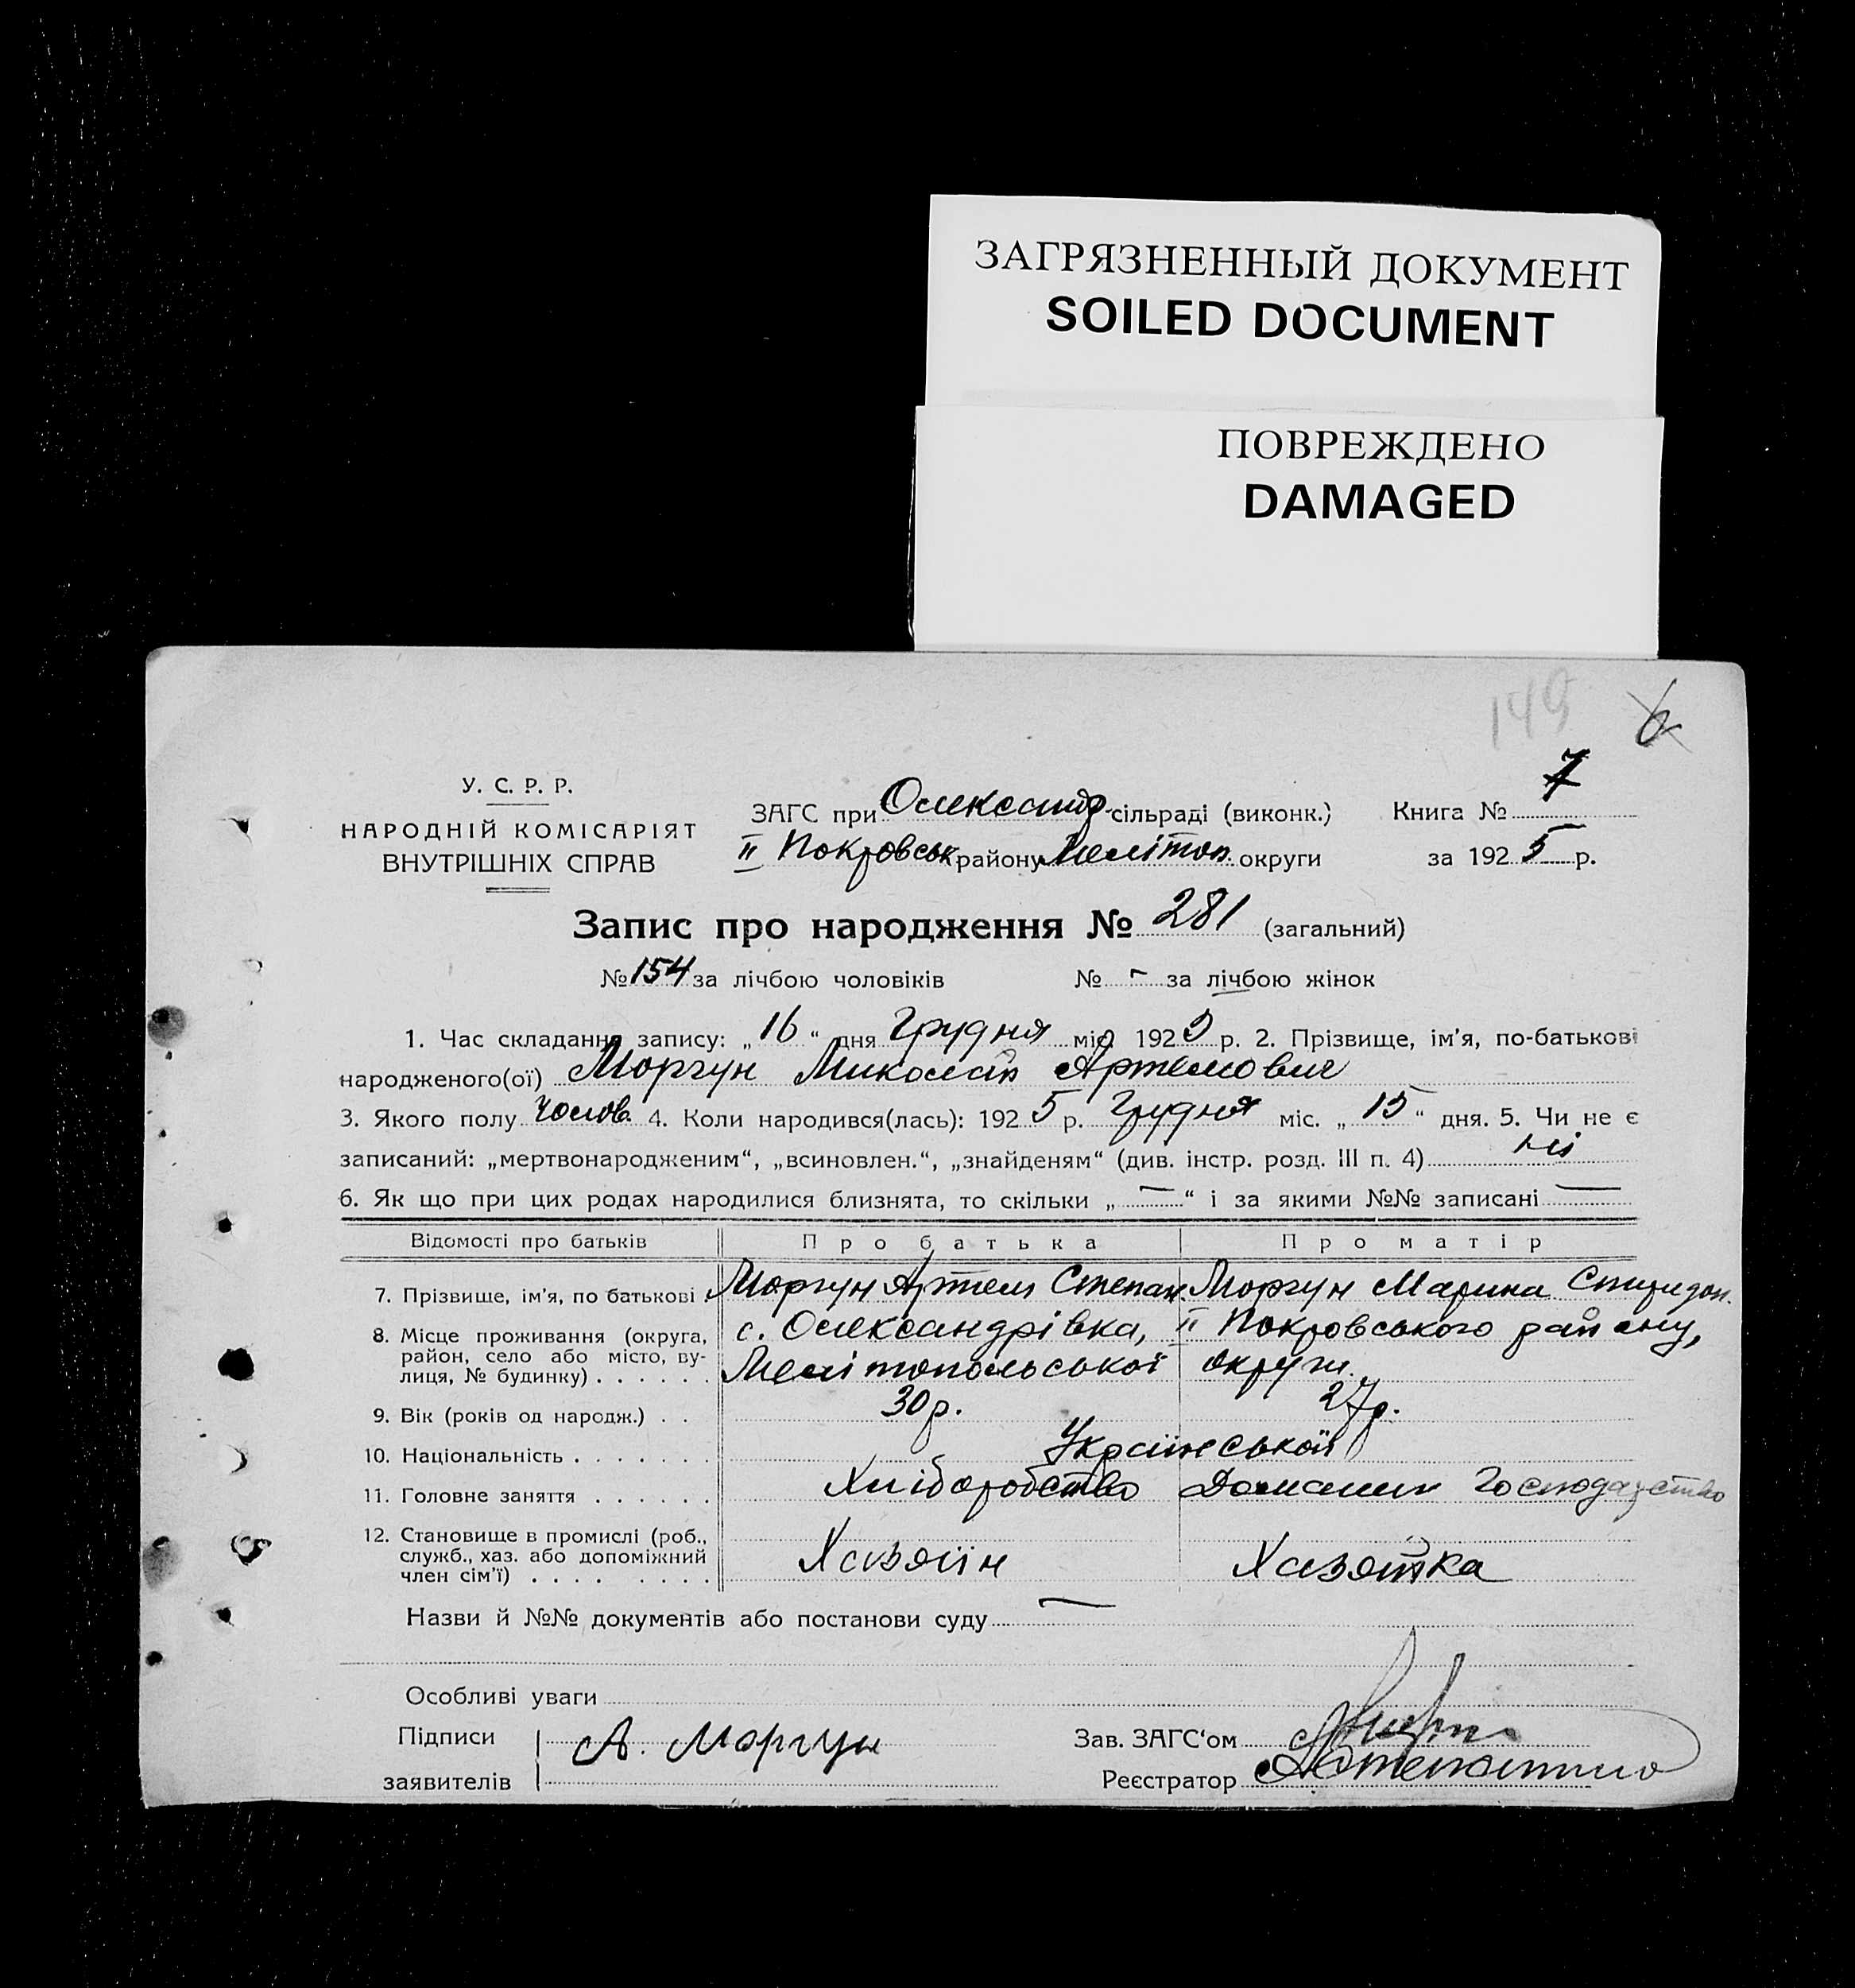 ЗАГРЯЗНЕННЫЙ ДОКУМЕНТ
SOILED DOCUMENT
ПОВРЕЖДЕНО
DAMAGED
149 6
У. С. Р. Р.
НАРОДНІЙ КОМІСАРІЯТ
ВНУТРІШНІХ СПРАВ
ЗАГС при Олександр. сільраді (виконк.)
II Покровськ району Мелітоп. округи
Книга № 7
за 1925 р.
Запис про народження № 281 (загальний)
№ 154 за лічбою чоловіків № - за лічбою жінок
1. Час складання запису: „16“ дня Грудня міс 1925 р. 2. Прізвище, ім'я, по-батькові
народженого(ої) Моргун Микола Артемович
3. Якого полу Чолов. 4. Коли народився(лась): 1925 р. Грудня міс. „15“ дня. 5. Чи не є
записаний: „мертвонародженим“, „всиновлен.“, „знайденям“ (див. інстр. розд. III п. 4) ні
6. Як що при цих родах народилися близнята, то скільки „—“ і за якими №№ записані —
Відомості про батьків Про батька Про матір
7. Прізвище, ім'я, по батькові Моргун Артем Степан. Моргун Марина Спиридон.
8. Місце проживання (округа, район, село або місто, вулиця, № будинку) . . . . . .
с. Олександрівка, II Покровського району,
Мелітопольської округи.
9. Вік (років од народж.) . . 30 р. 27 р.
10. Національність . . . . . . . Української
11. Головне заняття . . . . . . Хліборобство Домашнє Господарство
12. Становище в промислі (роб., служб., хаз. або допоміжний член сім'ї) . . . . . . . .
Хазяїн Хазяйка
Назви й №№ документів або постанови суду —
Особливі уваги
Підписи заявителів А. Моргун
Зав. ЗАГС'ом
Реєстратор